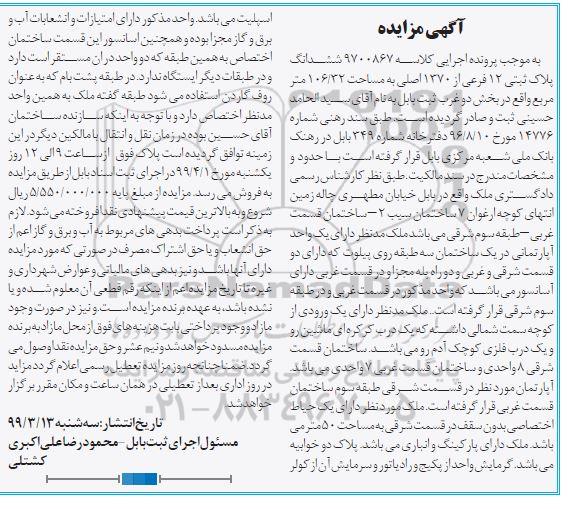 آگهی مزایده
به موجب پرونده اجرایی کلاسه ۹۷۰۰۸۶۷ ششدانگ
پلاک ثبتی ۱۲ فرعی از ۱۳۷۰ اصلی به مساحت ۱۰۶/۳۲ متر
مربع واقع در بخش دو غرب ثبت بابل به نام آقای سید الحامد
حسینی ثبت و صادر گردیده است. طبق سند رهنی شماره
۱۴۷۷۶ مورخ ۹۶/۸/۱۰ دفترخانه شماره ۳۴۹ بابل در رهن
بانک ملی شعبه مرکزی بابل قرار گرفته است با حدود و
مشخصات مندرج در سند مالکیت. طبق نظر کارشناس رسمی
دادگستری ملک واقع در بابل خیابان مطهری چاله زمین
انتهای کوچه ارغوان ۷ ساختمان سیب ۲ – ساختمان قسمت
غربی – طبقه سوم شرقی می باشد ملک مدنظر دارای یک واحد
آپارتمانی در یک ساختمان سه طبقه روی پیلوت که دارای دو
قسمت شرقی و غربی و دو راه پله مجزا و در قسمت غربی دارای
آسانسور می باشد که واحد مذکور در قسمت غربی و در طبقه
سوم شرقی قرار گرفته است. ملک مدنظر دارای یک ورودی از
کوچه سمت شمالی داشته که یک درب کرکره ای ماشین رو
و یک درب فلزی کوچک آدم رو می باشد. ساختمان قسمت
شرقی ۸ واحدی و ساختمان قسمت غربی ۷ واحدی می باشد.
آپارتمان مورد نظر در قسمت شرقی طبقه سوم ساختمان
قسمت غربی قرار گرفته است. ملک مورد نظر دارای یک حیاط
اختصاصی بدون سقف در قسمت شرقی به مساحت ۵۰ متر می
باشد. ملک دارای پارکینگ و انباری می باشد. پلاک دو خوابیه
می باشد. گرمایش واحد از پکیج و رادیاتور و سرمایش آن از کولر
اسپلیت می باشد. واحد مذکور دارای امتیازات و انشعابات آب و
برق و گاز مجزا بوده و همچنین اسانسور این قسمت ساختمان
اختصاص به همین طبقه که دو واحد در ان مستقر است دارد
و در طبقات دیگر ایستگاه ندارد. در طبقه پشت بام که به عنوان
روف گاردن استفاده می شود طبقه گفته ملک به همین واحد
مدنظر اختصاص دارد و با توجه به اینکه سازنده ساختمان
آقای حسین بوده در زمان نقل و انتقال با مالکین دیگر در این
زمینه توافق گردیده است پلاک فوق از ساعت ۹ الی ۱۲ روز
یکشنبه مورخ ۹۹/۴/۱ در اجرای ثبت اسناد بابل از طریق مزایده
به فروش می رسد. مزایده از مبلغ پایه ۵/۵۵۰/۰۰۰/۰۰۰ ریال
شروع و به بالاترین قیمت پیشنهادی نقدا فروخته می شود. لازم
به ذکر است پرداخت بدهی های مربوط به آب و برق و گاز اعم از
حق انشعاب و یا حق اشتراک مصرف در صورتی که مورد مزایده
دارای آنها باشد و نیز بدهی های مالیاتی و عوارض شهرداری و
غیره تا تاریخ مزایده اعم از اینکه رقم قطعی آن معلوم شده و یا
نشده باشد، به عهده برنده مزایده است و نیز در صورت وجود
مازاد وجوه پرداختی بابت هزینه های فوق از محل مازاد به برنده
مزایده مسدود خواهد شد و نیم عشر و حق مزایده نقدا وصول می
گردد. ضمنا چنانچه روز مزایده تعطیل رسمی اعلام گردد مزاید
در روز اداری بعد از تعطیلی در همان ساعت و مکان مقرر برگزار
خواهد شد.
تاریخ انتشار: سه شنبه ۹۹/۳/۱۳
مسئول اجرای ثبت بابل – محمودرضا علی اکبری
کشتلی
۰۲۱-۸۸۳۴۹۶۷۰-۵